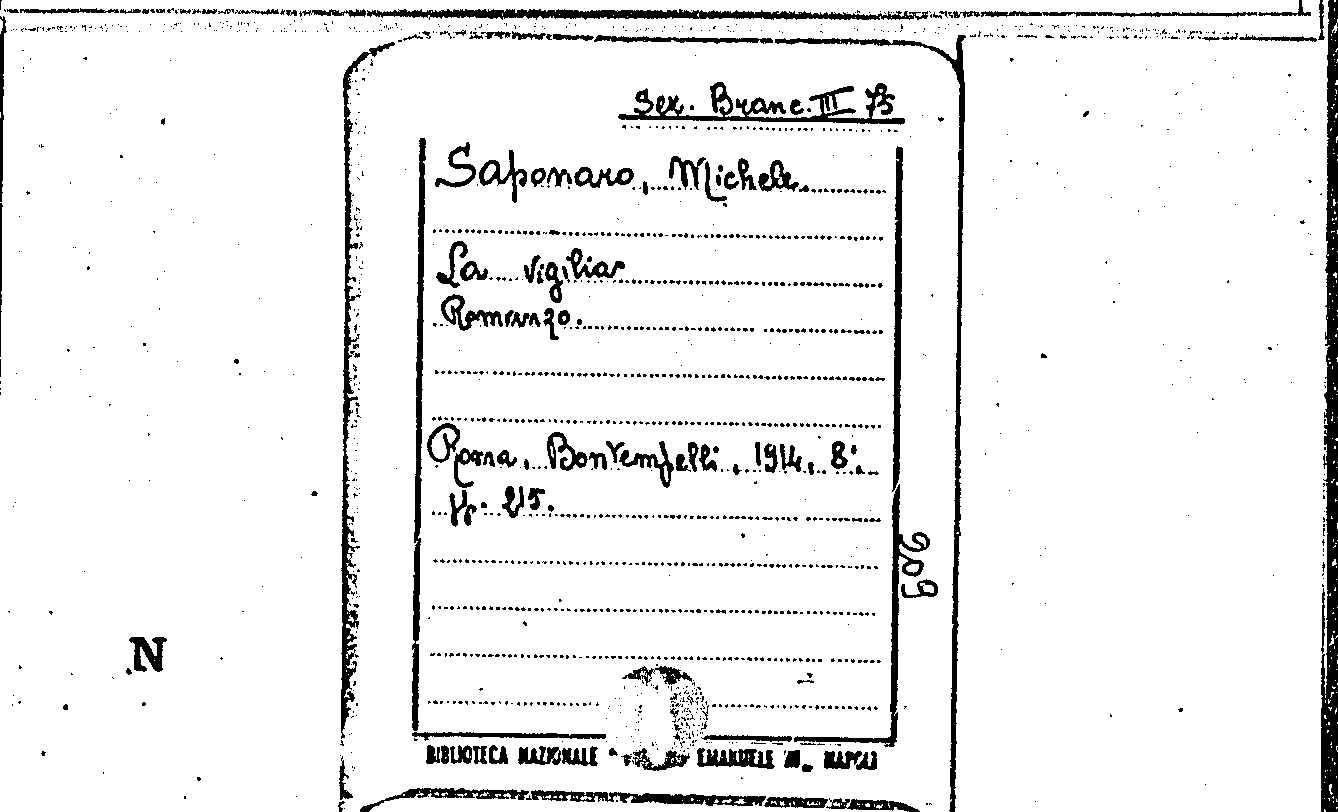 Sez. Branc. III 75
Saponaro, Michele.
La vigilia
Romanzo.
Roma, Bontempelli, 1914, 8°.
Pp. 215.
209
N
BIBLIOTECA NAZIONALE EMANUELE III_ NAPOLI